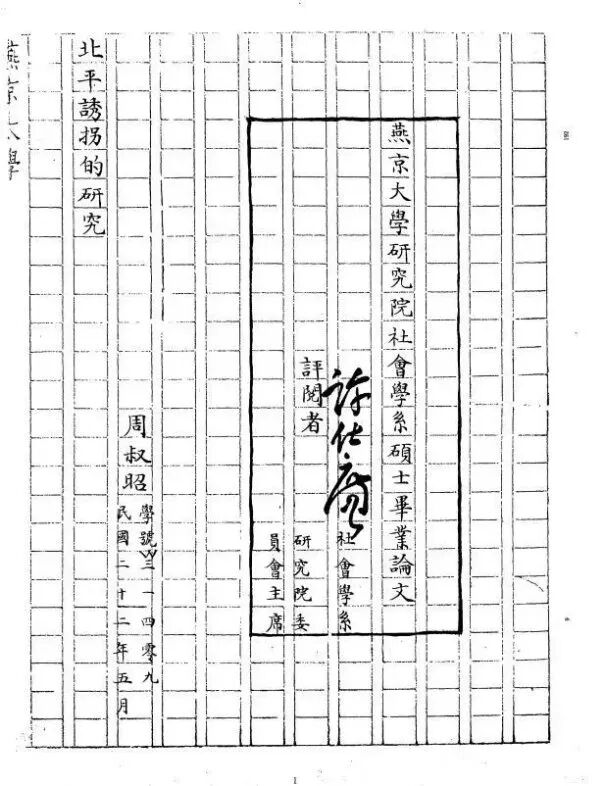 燕京大學研究院社會學系碩士畢業論文
評閱者
許仕廉
社會學系
研究院委
員會主席
周叔昭
學號W三一四零九
民國二十二年五月
北平誘拐的研究
燕京大學
1